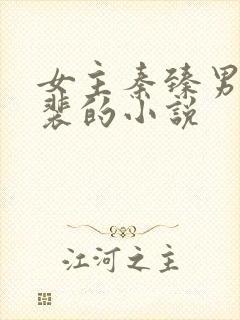 女主秦臻男
裴的小说
江河之主